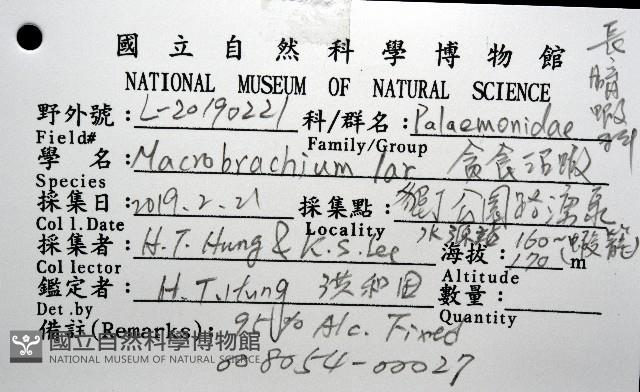 國立自然科學博物館
長臂蝦科
NATIONAL MUSEUM OF NATURAL SCIENCE
野外號: L-20190221 科/群名: Palaemonidae
Field# Family/Group
學 名: Macrobrachium lar 貪食沼蝦
Species
採集日: 2019.2.21 採集點: 墾丁公園路湧泉
Coll.Date Locality 水源站
採集者: H.T. Hung & K.S. Lee 海拔: 160~170 m (蝦籠)
Collector Altitude
鑑定者: H.T. Hung 洪和田 數量:
Det.by Quantity
備註(Remarks): 95% Alc. Fixed
國立自然科學博物館
NATIONAL MUSEUM OF NATURAL SCIENCE
008054-00027